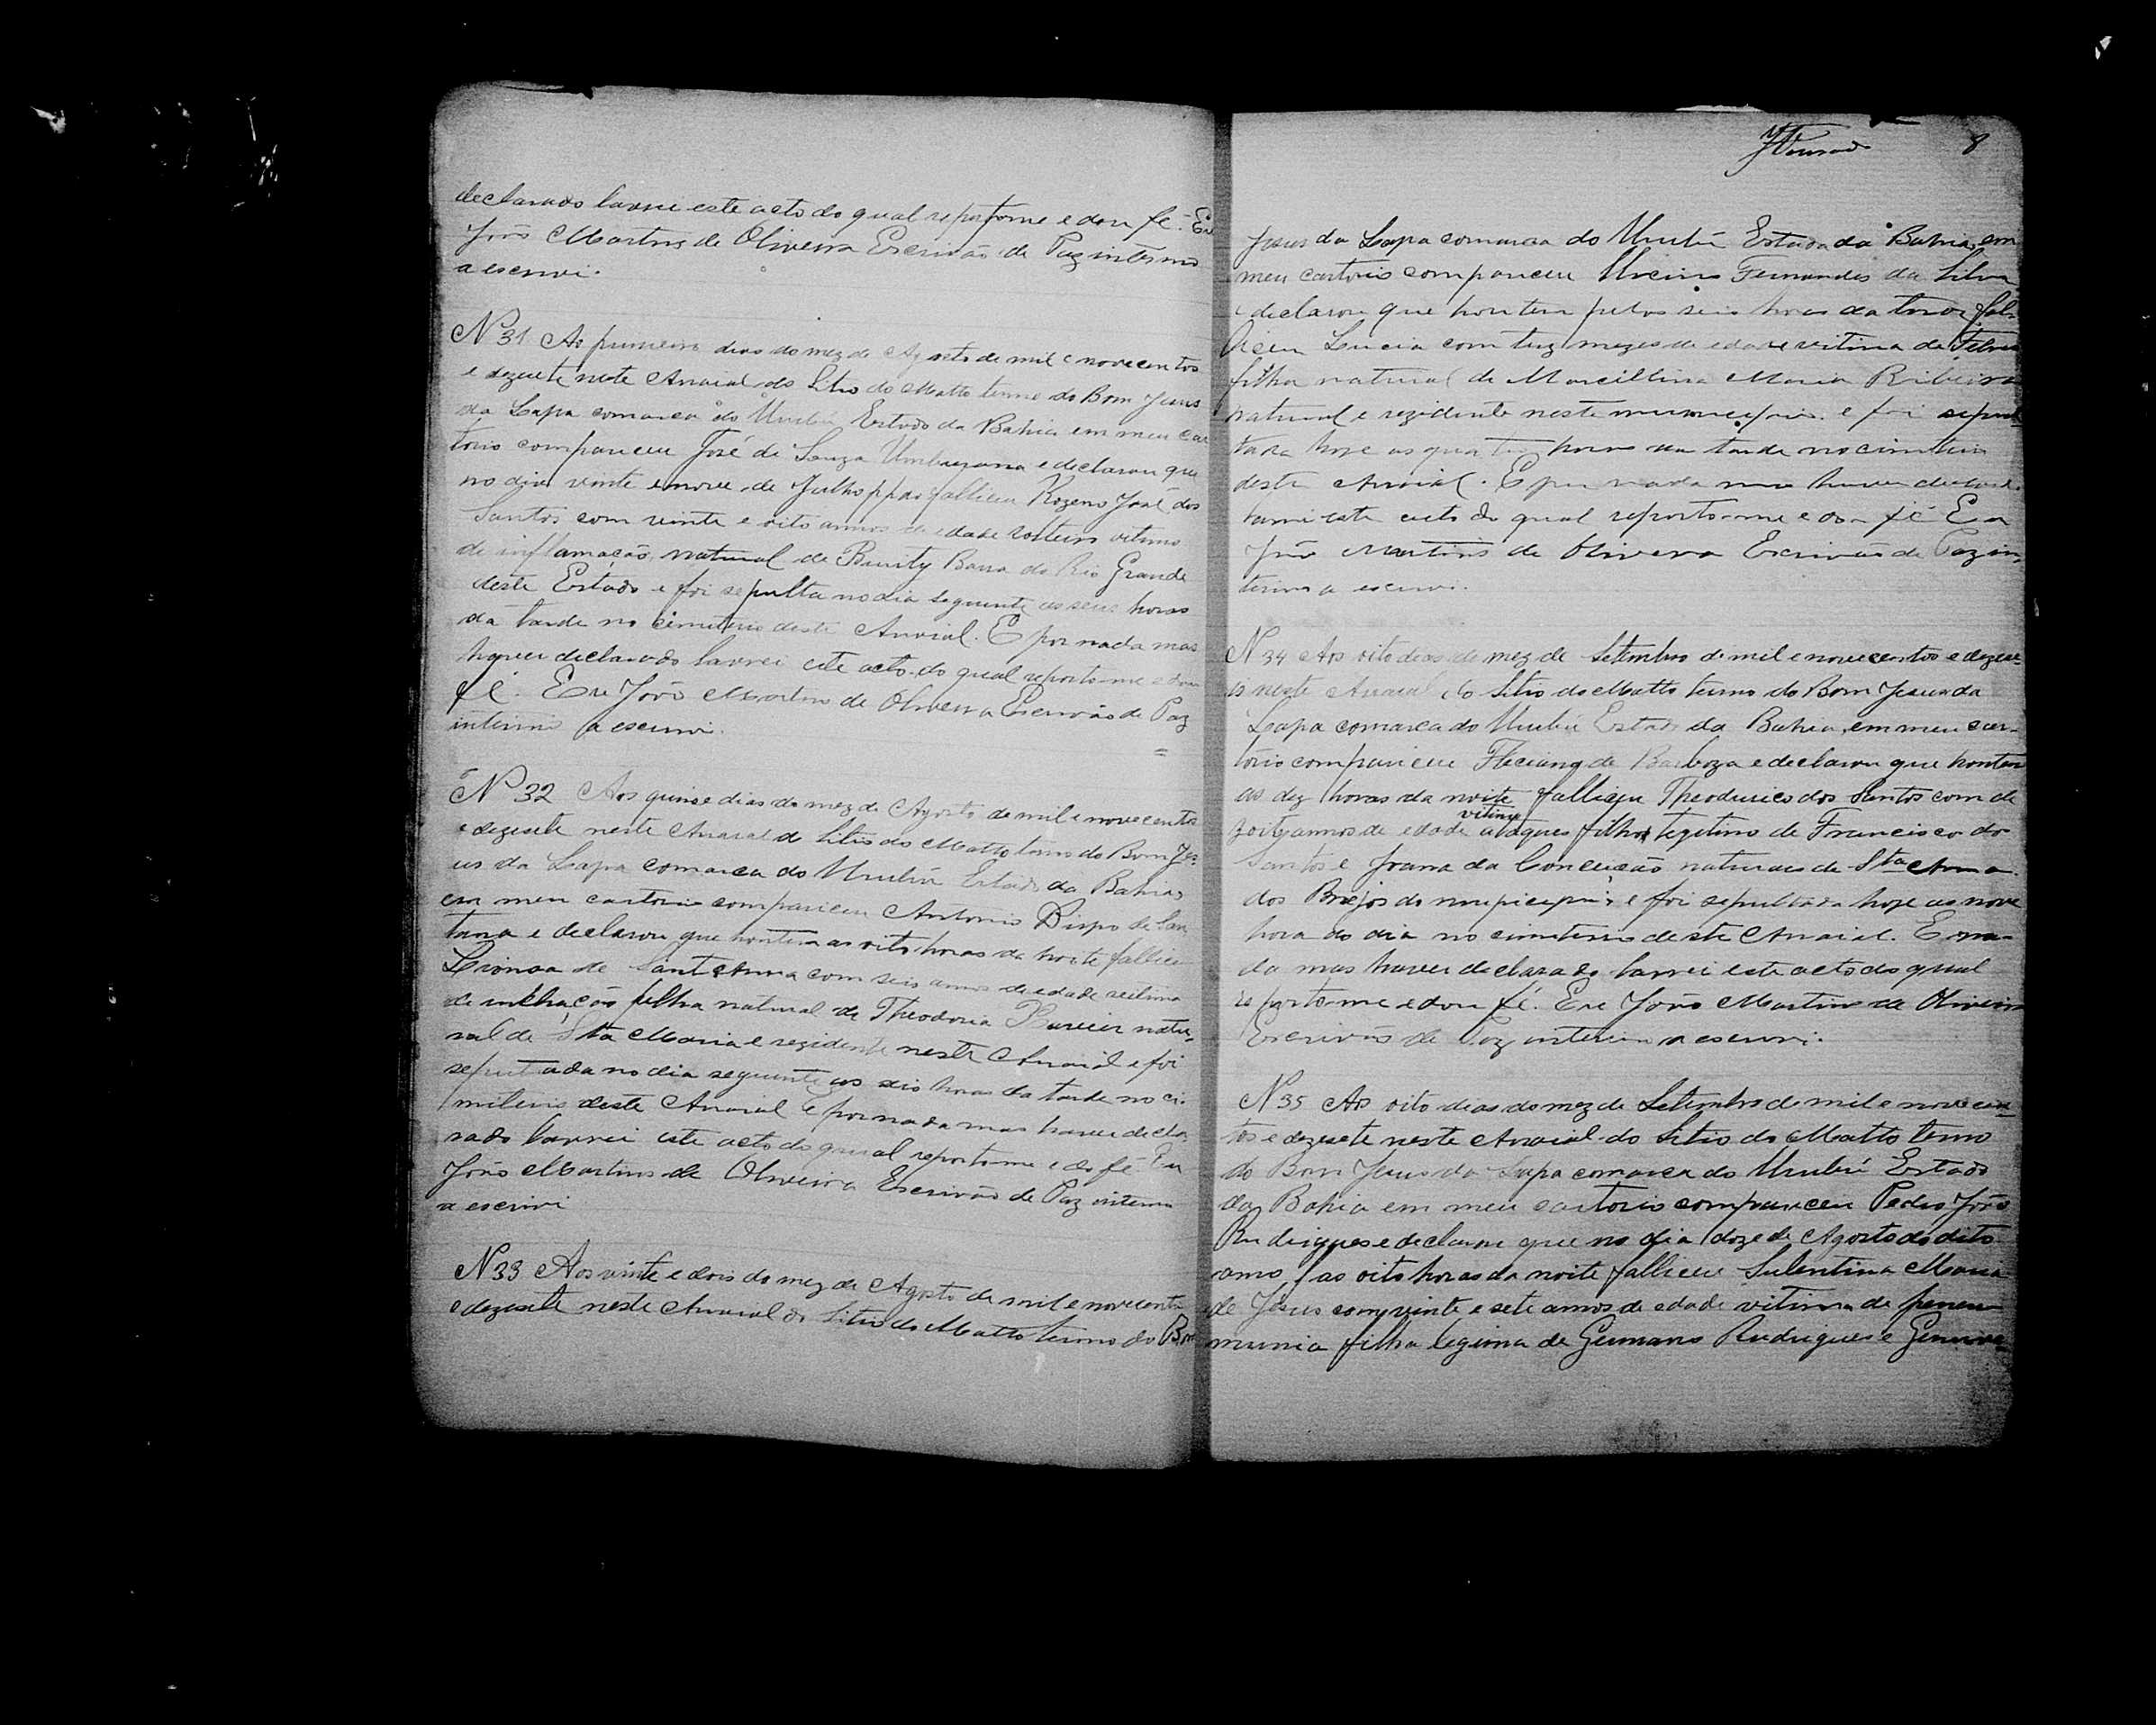 declarado lavrei este acto do qual reportome e dou fé. Eu
João Martins de Oliveira Escrivão de Paz interino
a escrevi.
N 31 Ao primeiro dias do mez de Agosto de mil e novecentos
e dezesete neste Arraial do Sitio do Matto termo do Bom Jesus
da Lapa comarca do Urubú Estado da Bahia em meu car
torio compareceu José de Souza Umburana e declarou que
no dia vinte e nove de Julho ppdo falliceu Rozeno José dos
Santos com vinte e oito annos de edade solteiro vitima
de inflamação, natural de Burity Barra do Rio Grande
deste Estado e foi sepulta no dia seguinte as seis horas
da tarde no cimiterio deste Arraial. E por nada mas
haver declarado lavrei este acto do qual reporto-me e dou
fé. Eu João Martins de Oliveira Escrivão de Paz
interino a escrevi.
N 32 Aos quinse dias do mez de Agosto de mil e novecentos
e dezesete neste Arraial do Sitio do Matto termo do Bom Jes
us da Lapa comarca do Urubú Estado da Bahia
em meu cartorio compareceu Antonio Bispo de San
tana e declarou que hontem as oito horas da noite fallice
de Sant Anna com seis annos de edade vitima
de inchação filha natural de Theodoria Xavier natu-
ral de Sta Maria e rezidente neste Arraial e foi
sepultada no dia seguinte as seis horas da tarde no ci-
miterio deste Arraial E por nada mas haver decla
rado lavrei este acto do qual reporto-me e do fé Eu
João Martins de Oliveira Escrivão de Paz interino
a escrivi
N 33 Aos vinte e dois do mez de Agosto de mil e novecento
e dezesete neste Arraial do Sitio do Matto termo do Bom
8
Jesus da Lapa comarca do Urubú Estado da Bahia, em
meu cartorio compareceu Fernandes da Silva
e declarou que hontem pelas seis horas da tarde fal-
liceu Lucia com trez mezes de edade vitima de Febre
filha natural de Marcillina Maria Ribeira
natural e rezidente neste municipio e foi sepul-
tada hoje as quatro horas da tarde no cimiterio
deste Arraial. E por nada mas haver declarado
lavrei este acto do qual reporto-me e dou fé Eu
João Martins de Olivera Escrivão de Paz in-
terino a escrevi.
N 34 Aos oito dias do mez de Setembro de mil e novecentos e dezese-
te neste Arraial do Sitio do Matto termo do Bom Jesus da
Lapa comarca do Urubú Estado da Bahia, em meu car-
torio compareceu de Barboza e declarou que hontem
as dez horas da noite falliceu Theodurico dos Santos com de
zoito annos de edade vitima ataques filho legitimo de Francisco do
Santos e Joana da Conceição naturaes de Sta Anna
dos Brejos do e foi sepultada hoje as nove
hora do dia no cimiterio deste Arraial. E na-
da mas haver declarado lavrei este acto do qual
reporto-me e dou fé. Eu João Martins de Oliveira
Escrivão de Paz interino a escrevi.
N 35 Aos oito dias do mez de Setembro de mil e novecen-
tos e dezesete neste Arraial do Sitio do Matto termo
do Bom Jesus da Lapa comarca do Urubú Estado
da Bahia em meu cartorio compareceu Pedro João
Rudrigues e declarou que no dia doze de Agosto do dito
anno, as oito horas da noite falliceu Sulentina Maria
de Jesus com vinte e sete annos de edade vitima de peneu
munia filha legima de Germano Rudrigues e